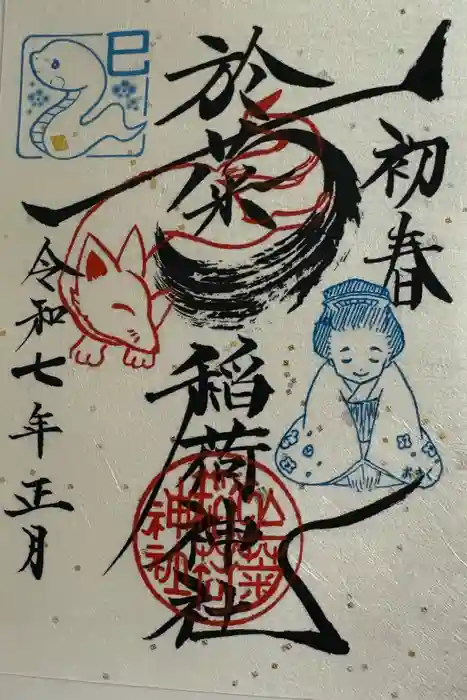 初春
於菊稲荷神社
令和七年正月
巳
おきく